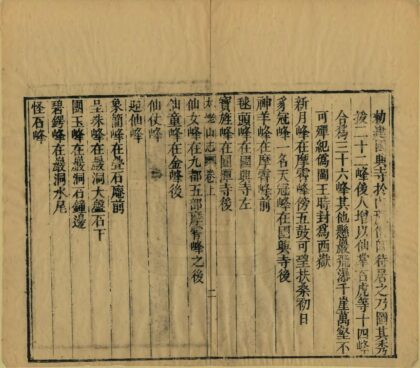 勅建國興寺於居之乃圖其秀
拔二十二峰後人增以仙掌石虎等十四峰
合爲三十六峰其他懸巖飛瀑千崖萬壑不
可殫紀爲閩王時封爲西嶽
新月峰在摩霄峰傍五鼓可望扶桑初日
豸冠峰一名天冠峰在國興寺後
神羊峰在摩霄峰前
毬頭峰在國興寺左
寶旌峰在國興寺後
太姥山志卷上 二
仙女峰在九都五部摩霄峰之後
仙童峰在金峰後
仙仗峰
迎仙峰
象簡峰在疊石庵前
呈珠峰在巖洞大盤石下
圓玉峰在巖洞石鐘邊
碧鍔峰在巖洞水尾
怪石峰